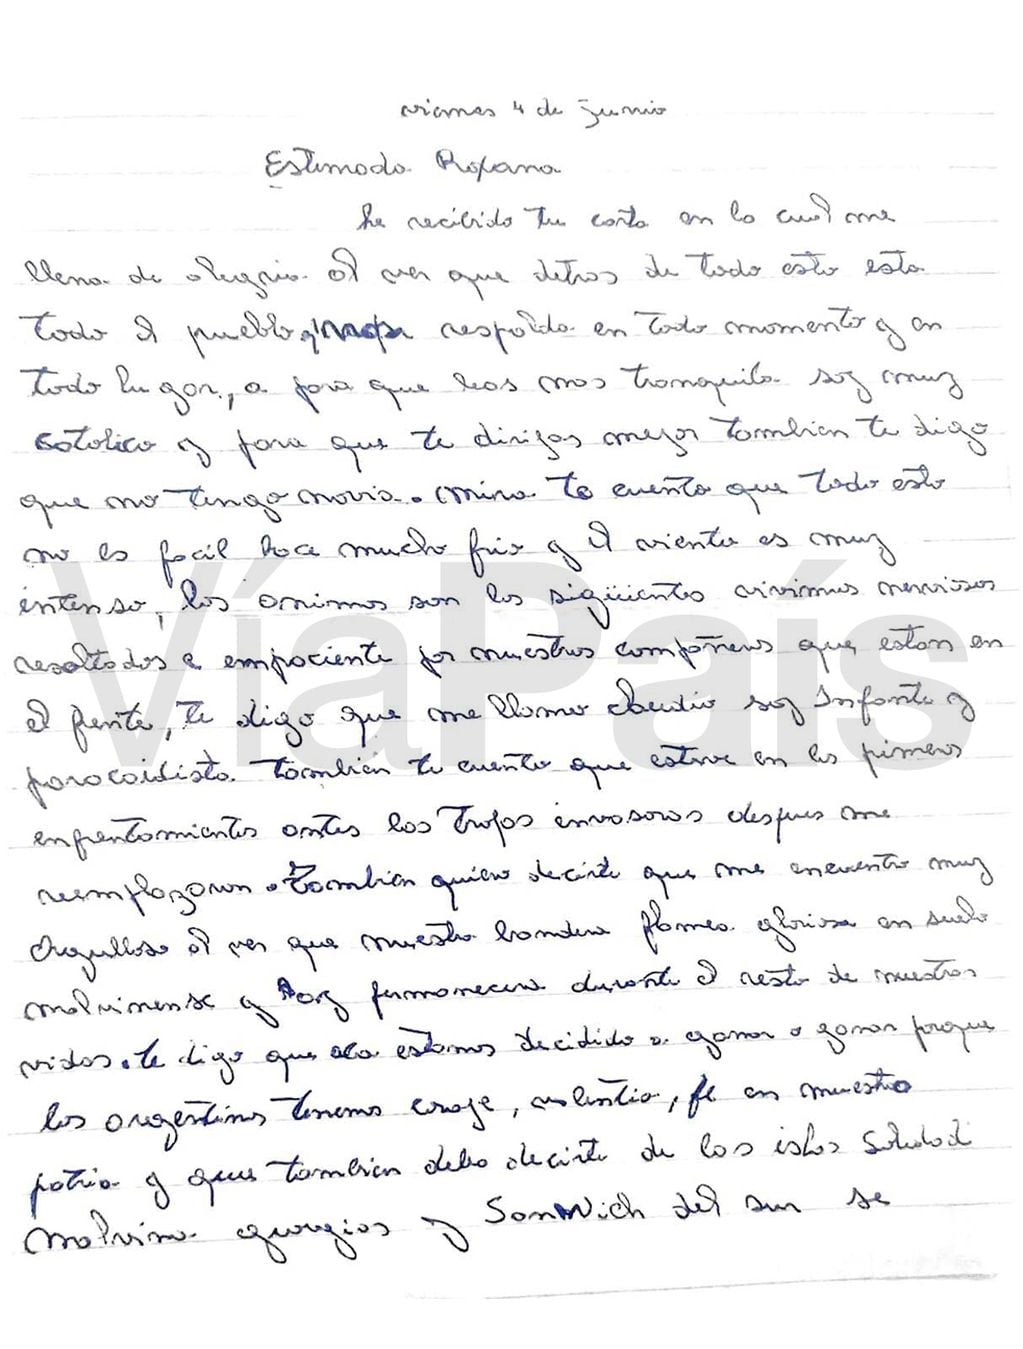 viernes 4 de Junio
Estimada Roxana
he recibido tu carta en la cual me
llena de alegria al ver que detras de todo esto esta
todo el pueblo que nos respalda en todo momento y en
todo lugar, a para que leas mas tranquila soy muy
catolico y para que te dirijas mejor tambien te digo
que no tengo novia. mira te cuento que todo esto
no es facil hace mucho frio y el viento es muy
intenso, los animos son los sigüientes vivimos nerviosos
resaltados e empaciente por nuestros compañeros que estan en
el frente, te digo que me llamo claudio soy Infante y
paracaidista. tambien te cuento que estuve en los primeros
enfrentamientos antes las tropas invasoras despues me
reemplazaron. tambien quiero decirte que me encuentro muy
orgulloso al ver que nuestra bandera flamea gloriosa en suelo
malvinense y permanecera durante el resto de nuestras
vidas. te digo que aca estamos decidido a ganar o ganar porque
los argentinos tenemos coraje, valentia, fe en nuestro
patria y que tambien debo decirte de las islas Soledad
Malvina georgias y SanWich del sur se
VíaPaís